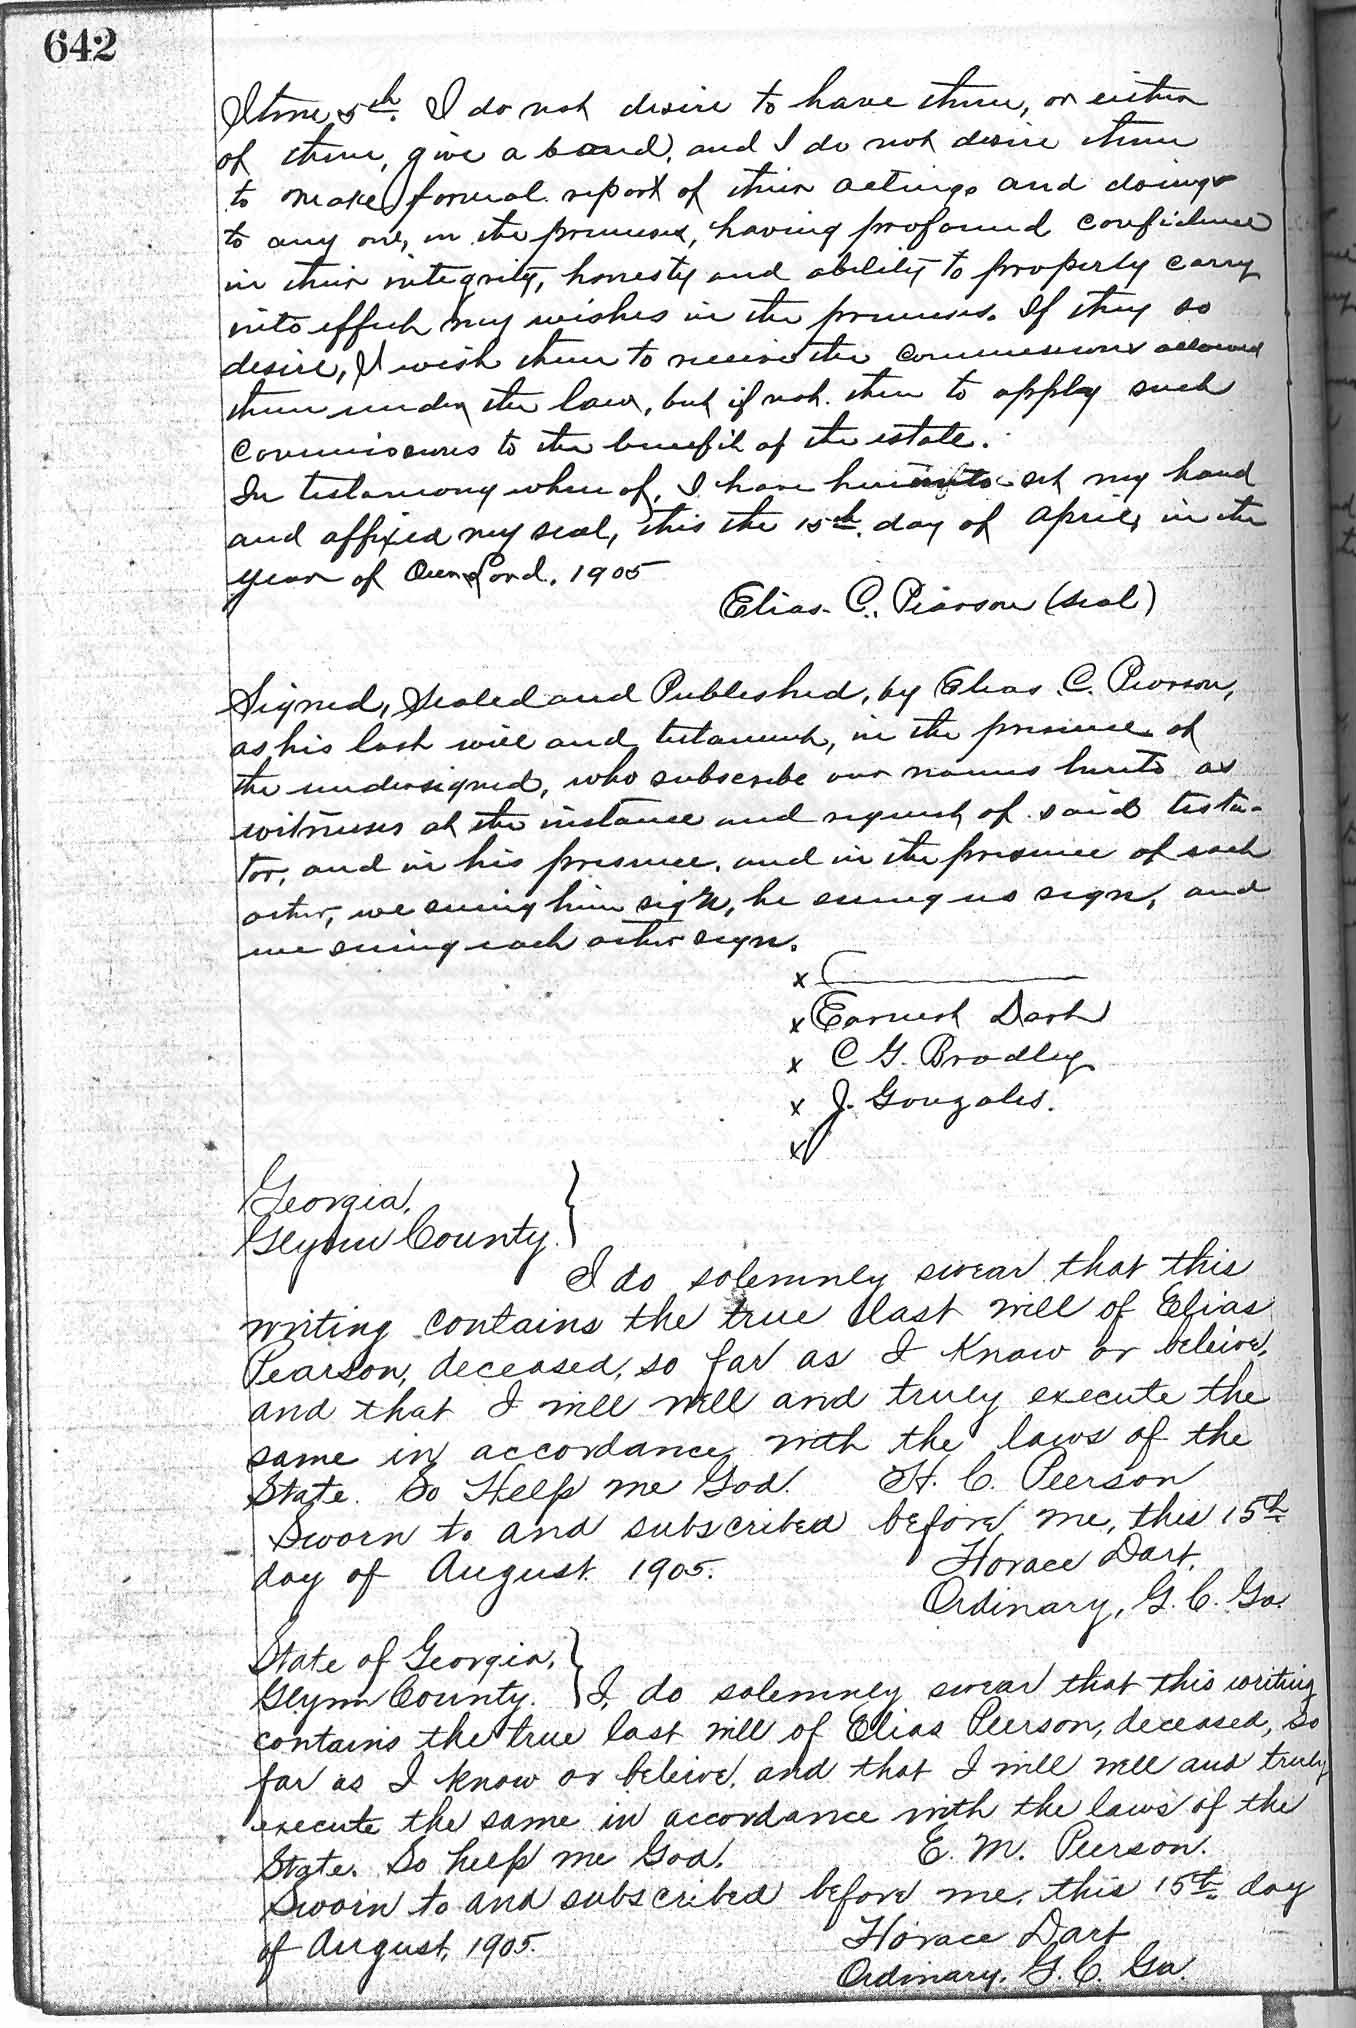 642
Item 5th. I do not desire to have them, or either
of them, give a bond, and I do not desire them
to make formal report of their actings and doings
to any one, in the premises, having profound confidence
in their integrity, honesty and ability to properly carry
into effect my wishes in the premises. If they so
desire, I wish them to receive the commissions allowed
them under the law, but if not. then to apply such
commissions to the benefit of the estate.
In testamony where of, I have hereunto set my hand
and affixed my seal, this the 15th. day of April, in the
year of Our Lord, 1905
Elias. C. Pearson (seal)
Signed, Sealed and Published, by Elias C. Pearson,
as his last will and testament, in the presence of
the undersigned, who subscribe our names hereto as
witnesses at the instance and request of said testa-
tor, and in his presence, and in the presence of each
other, we seeing him sign, he seeing us sign, and
we seeing each other sign.
x
x Earnest Dart
x C G. Bradley
x J. Gonzales.
x
Georgia,
Glynn County. }
I do solemnley swear that this
writing contains the true last will of Elias
Pearson, deceased, so far as I know or beleive,
and that I will well and truly execute the
same in accordance with the laws of the
State. So Help me God. H. C. Peerson
Sworn to and subscribed before me, this 15th
day of August 1905. Horace Dart.
Ordinary, G. C. Ga.
State of Georgia,
Glynn County. } I, do solemnley swear that this writing
contains the true last will of Elias Peerson, deceased, so
far as I know or beleive, and that I will well and truly
execute the same in accordance with the laws of the
State. So help me God. E. M. Peerson.
Sworn to and subscribed before me, this 15th. day
of August, 1905. Horace Dart
Ordinary, G. C. Ga.